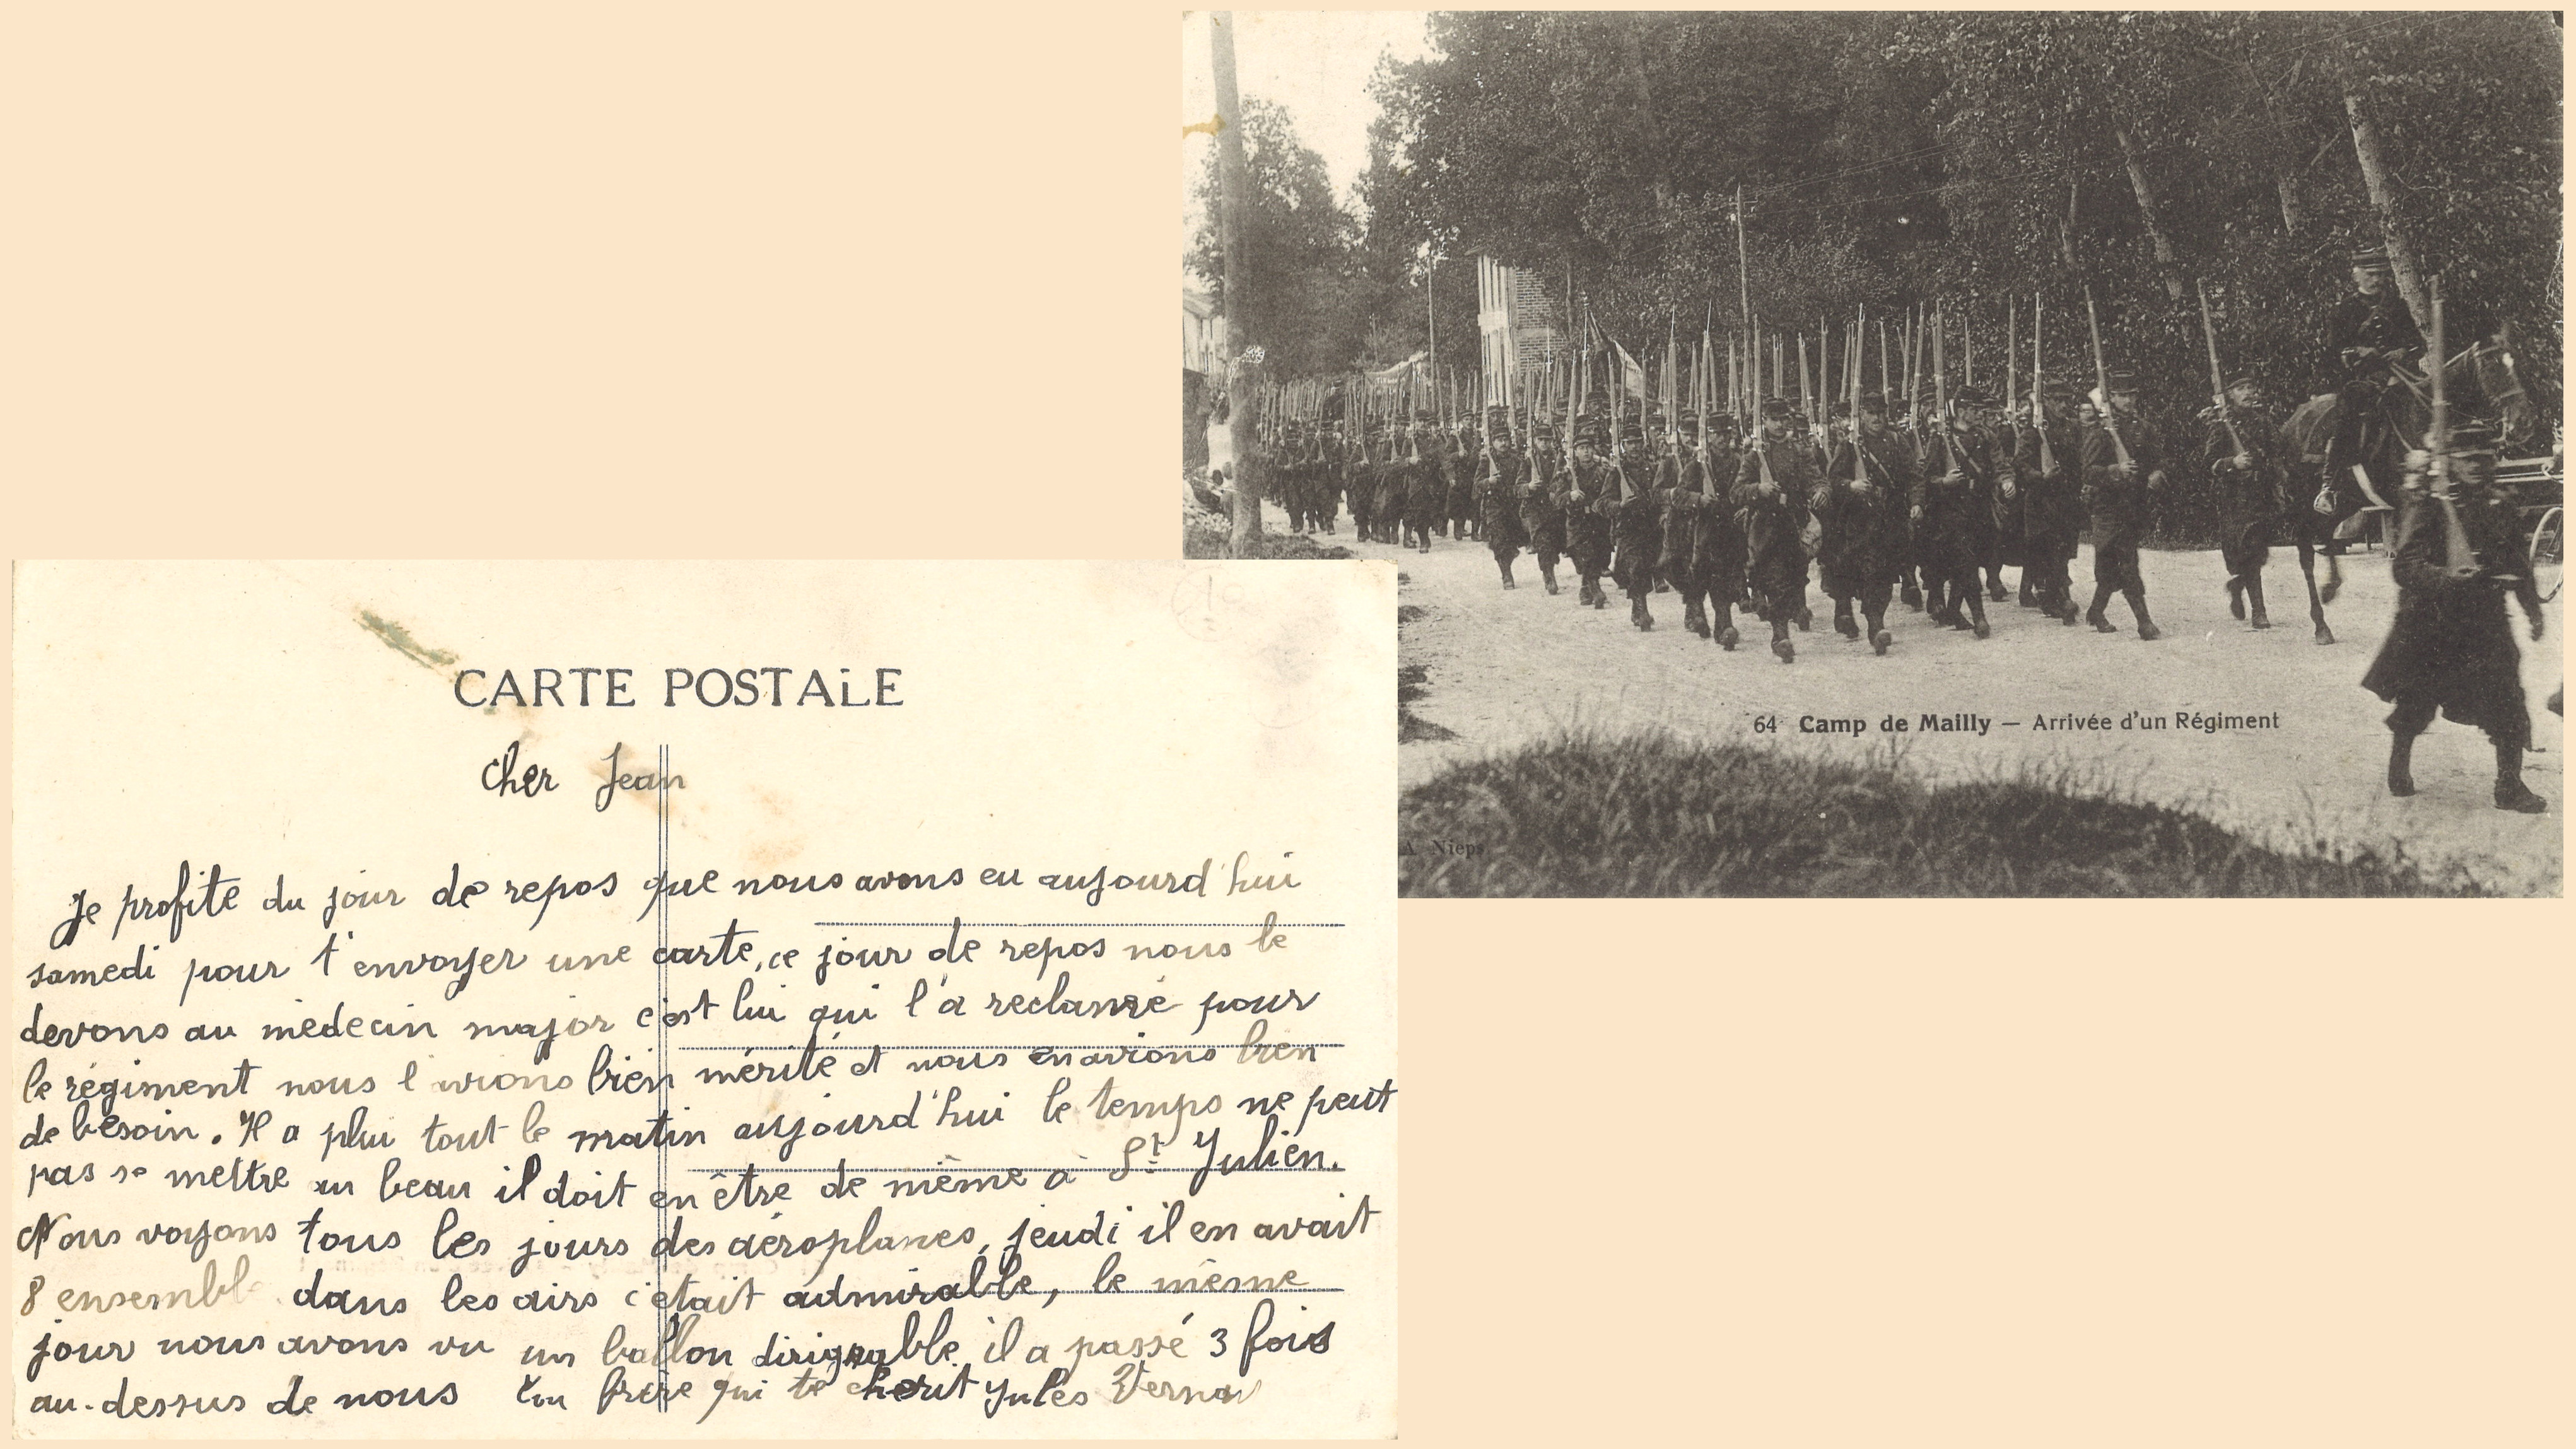 64 Camp de Mailly — Arrivée d'un Régiment
A Nieps
CARTE POSTALE
Cher Jean
Je profite du jour de repos que nous avons eu aujourd'hui
samedi pour t'envoyer une carte, ce jour de repos nous le
devons au médecin major c'est lui qui l'a reclamé pour
le régiment nous l'avions bien mérité et nous en avions bien
de besoin. Il a plu tout le matin aujourd'hui le temps ne peut
pas se mettre au beau il doit en être de même à St Julien.
Nous voyons tous les jours des aéroplanes, jeudi il en avait
8 ensemble dans les airs c'était admirable, le même
jour nous avons vu un ballon dirigeable il a passé 3 fois
au-dessus de nous ton frère qui te cherit Jules